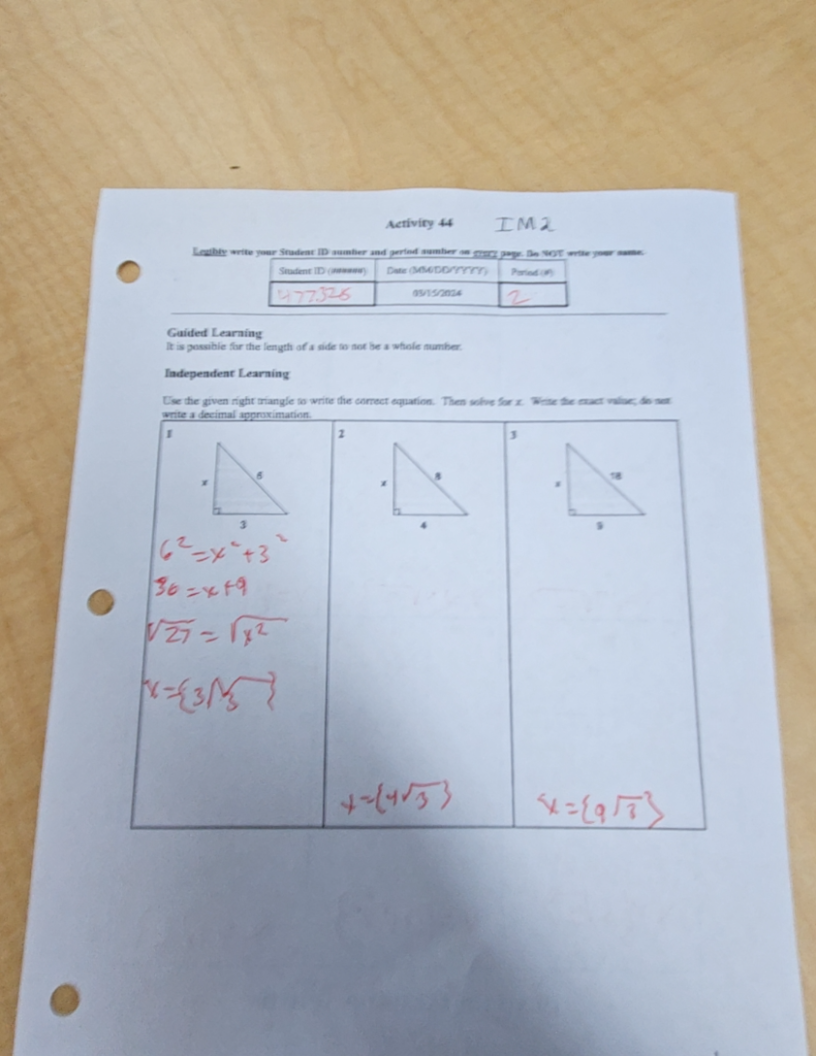 Activity 44 IM2
Legibly write your Student ID number and period number on every page. Do NOT write your name.
Student ID (######) Date (MM/DD/YYYY) Period (#)
477326 03/15/2024 2
Guided Learning
It is possible for the length of a side to not be a whole number.
Independent Learning
Use the given right triangle to write the correct equation. Then solve for x. Write the exact value; do not
write a decimal approximation.
1 2 3
x 6 x 8 x 18
3 4 9
6² = x² + 3²
36 = x + 9
√27 = √x²
x = {3√3}
x = {4√3} x = {9√3}